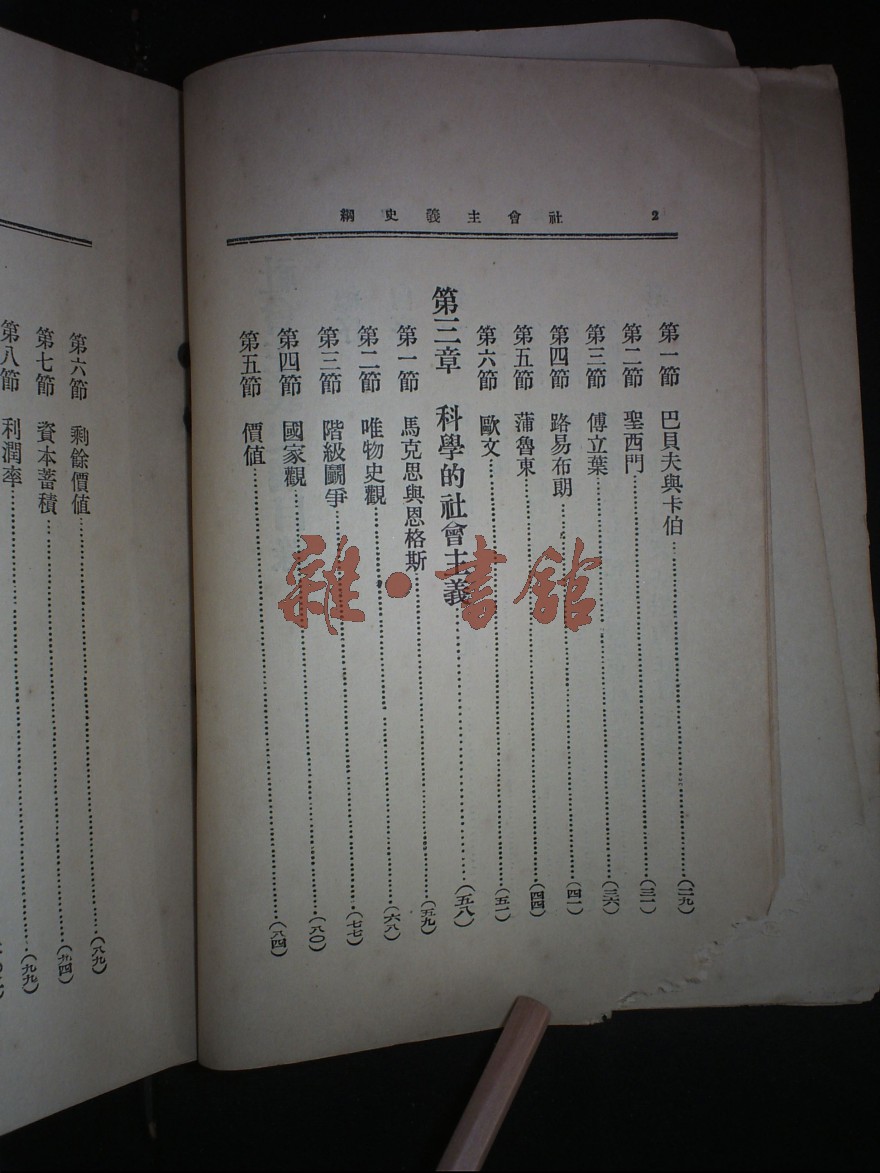 社會主義史綱 2
第一節 巴貝夫與卡伯……(二九)
第二節 聖西門……(三一)
第三節 傅立葉……(三六)
第四節 路易布朗……(四一)
第五節 蒲魯東……(四四)
第六節 歐文……(五一)
第三章 科學的社會主義……(五八)
第一節 馬克思與恩格斯……(五九)
第二節 唯物史觀……(六八)
第三節 階級鬭爭……(七七)
第四節 國家觀……(八〇)
第五節 價值……(八四)
第六節 剩餘價值……(八九)
第七節 資本蓄積……(九四)
第八節 利潤率……(九九)
雜·書館